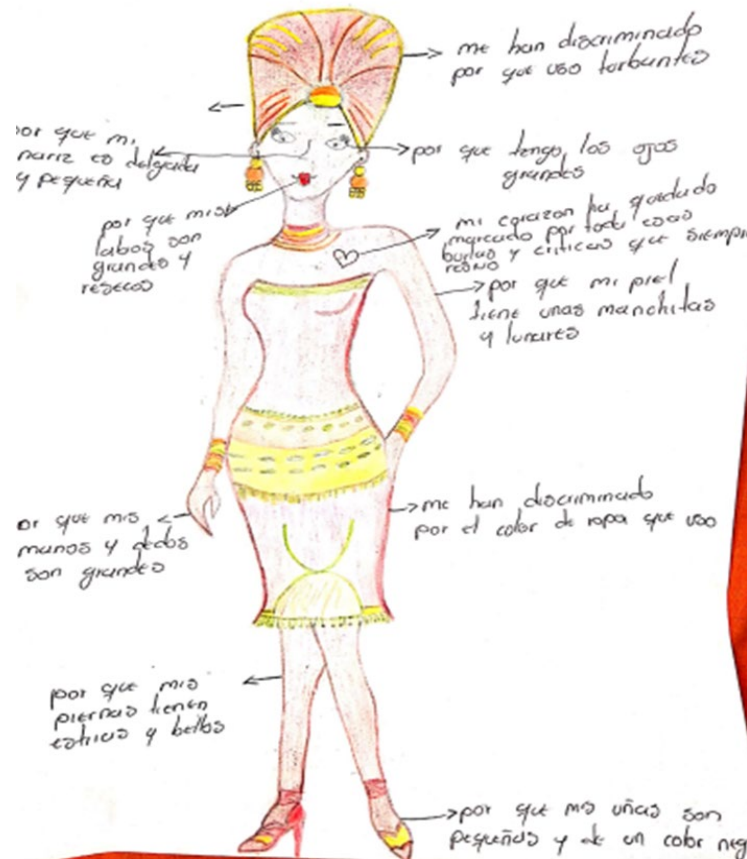 me han discriminado
por que uso turbantes
por que mi
nariz es delgada
y pequeña
por que tengo los ojos
grandes
por que mis
labos son
grandes y
resecos
mi corazon ha quedado
marcado por todas esas
burlas y criticas que siempre
resivo
por que mi piel
tiene unas manchitas
y lunares
me han discriminado
por el color de ropa que uso
or que mis
manos y dedos
son grandes
por que mis
piernas tienen
estrias y bellos
por que mis uñas son
pequeñas y de un color neg